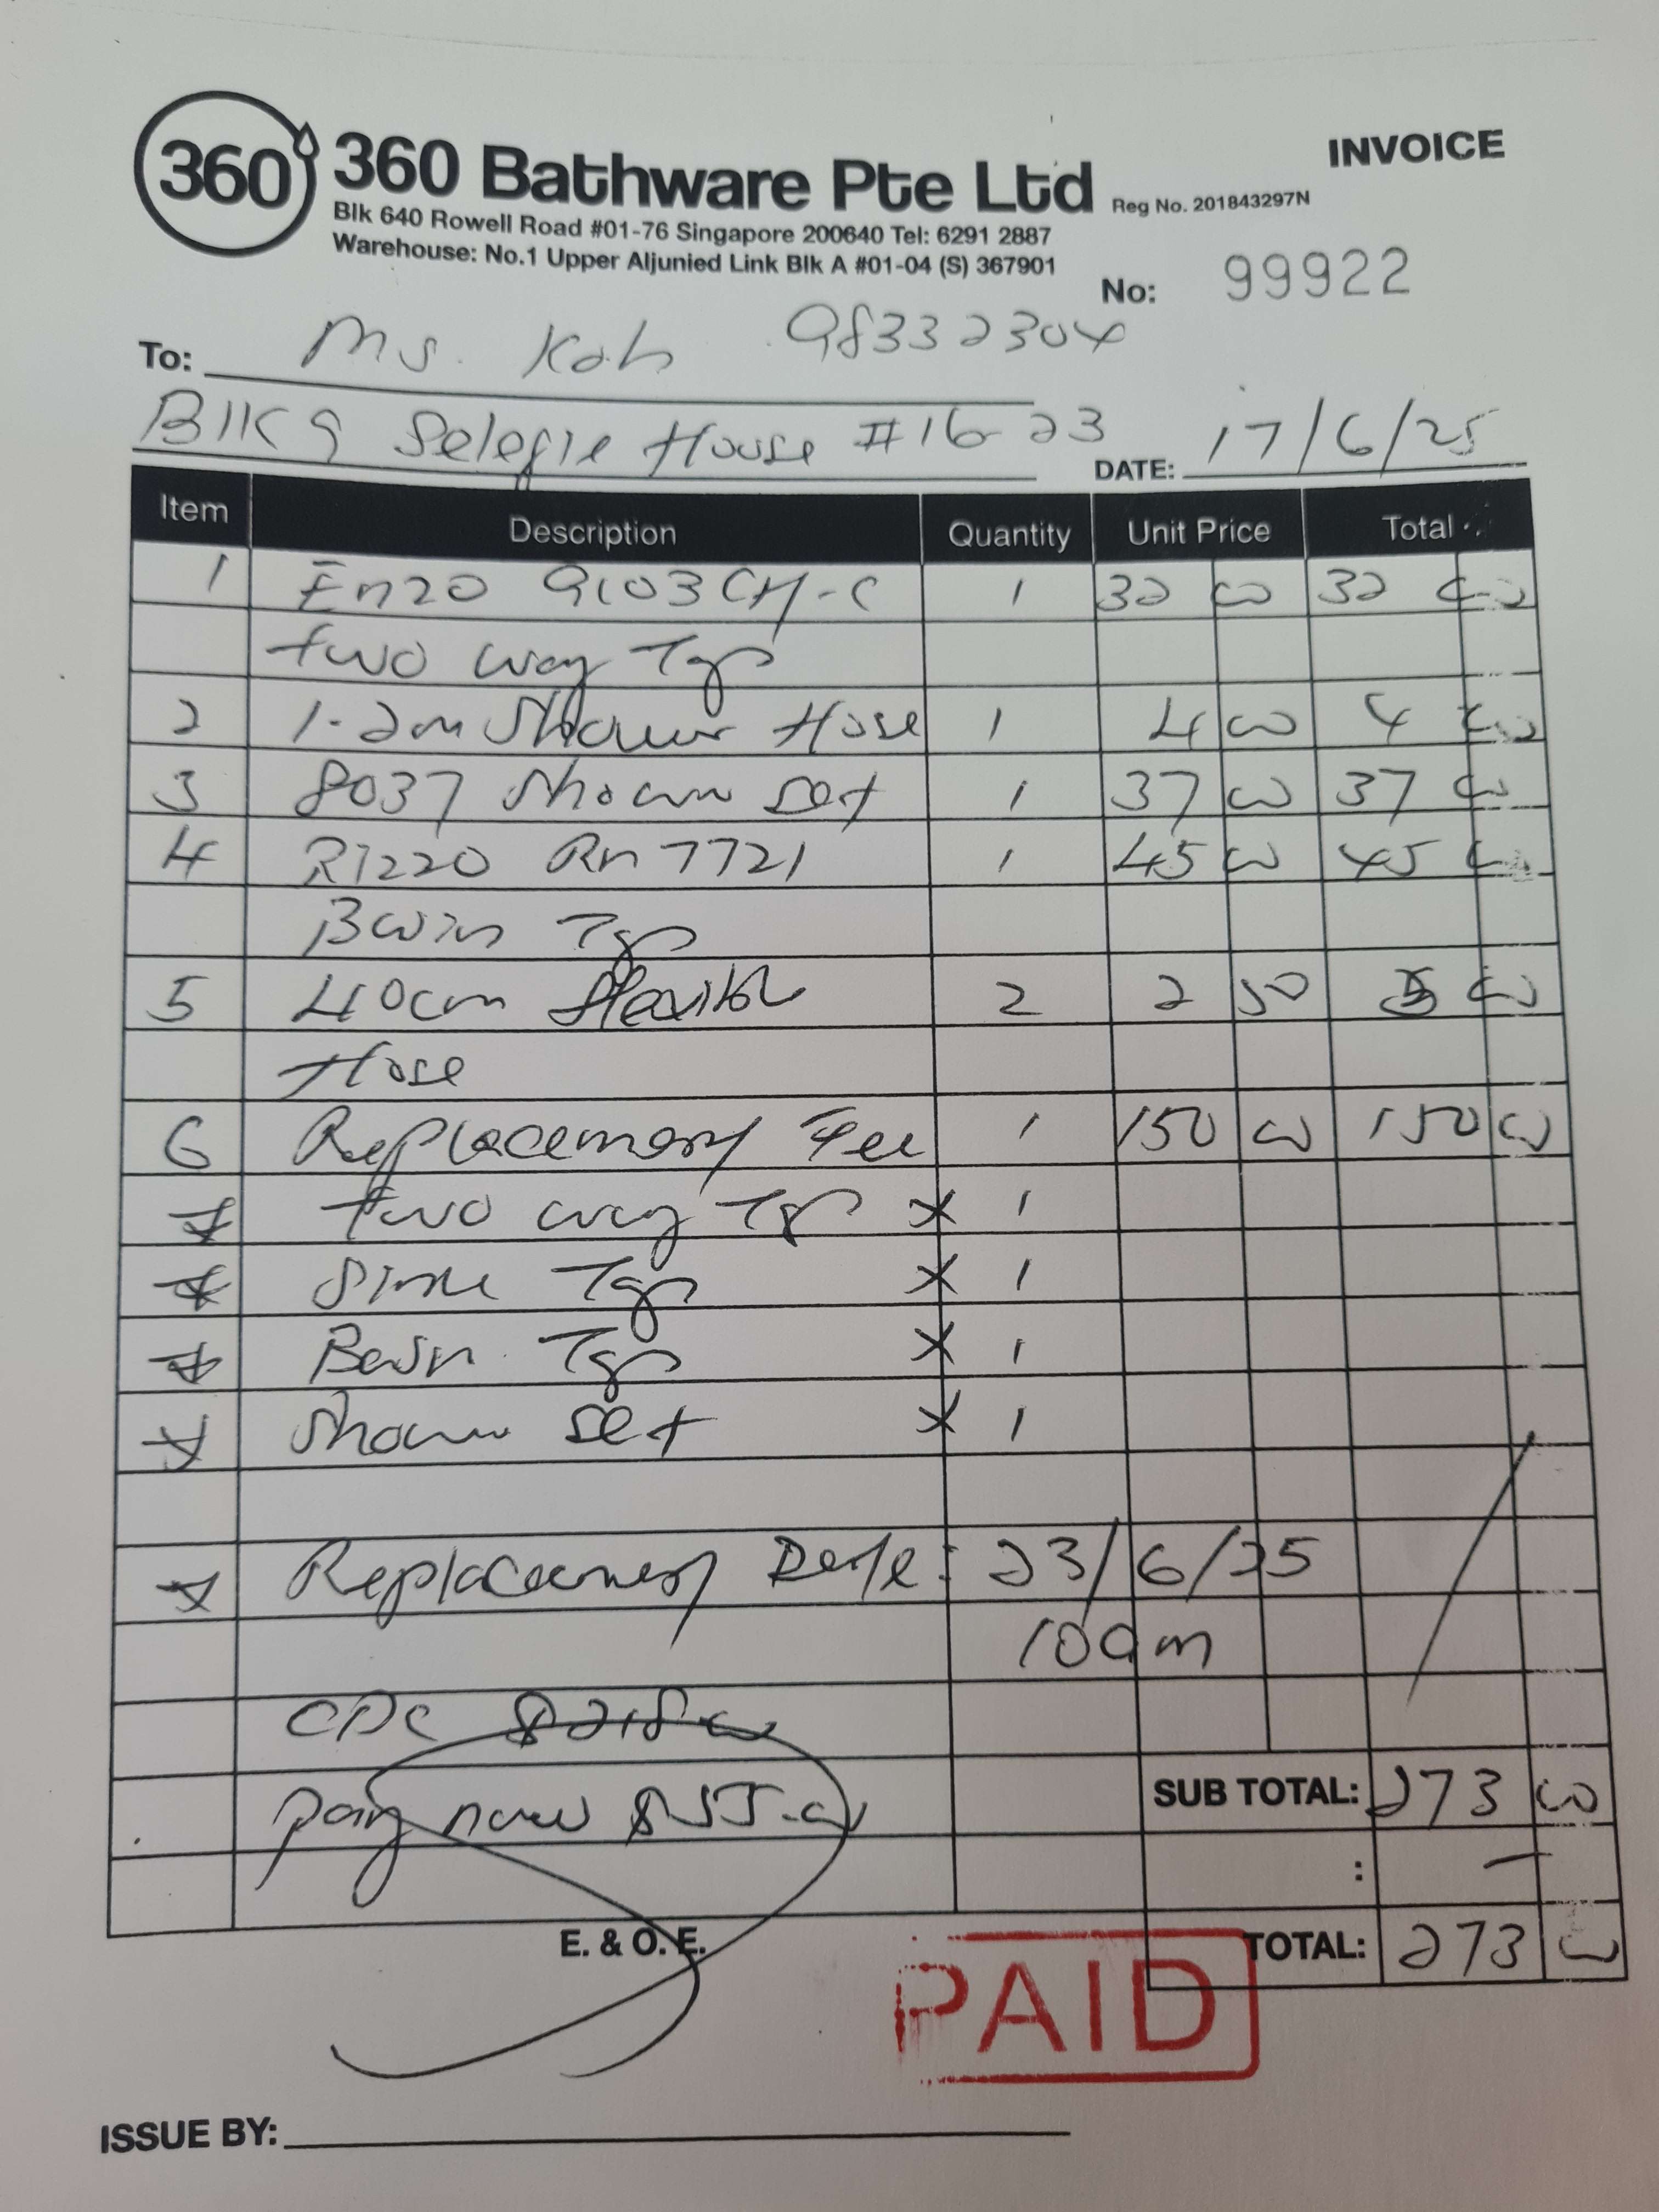 360
360 Bathware Pte Ltd Reg No. 201843297N
INVOICE
Blk 640 Rowell Road #01-76 Singapore 200640 Tel: 6291 2887
Warehouse: No.1 Upper Aljunied Link Blk A #01-04 (S) 367901
No: 99922
To: Ms. Koh 98332304
Blk 9 Selegie House #16-23
DATE: 17/6/25
Item Description Quantity Unit Price Total
1 Enzo 9103CH-C 1 32 00 32 00
two way Tap
2 1.2m Shower Hose 1 4 00 4 00
3 8037 Shower Set 1 37 00 37 00
4 Rizzo Rn 7721 1 45 00 45 00
Basin Tap
5 40cm flexible 2 2 50 5 00
Hose
6 Replacement Fee 1 150 00 150 00
* two way Tap x 1
* Sink Tap x 1
* Basin Tap x 1
* Shower Set x 1
* Replacement Date: 23/6/25
10am
CDC $218.00
pay now $55.00
SUB TOTAL: 273 00
: —
TOTAL: 273 00
E. & O. E.
PAID
ISSUE BY: